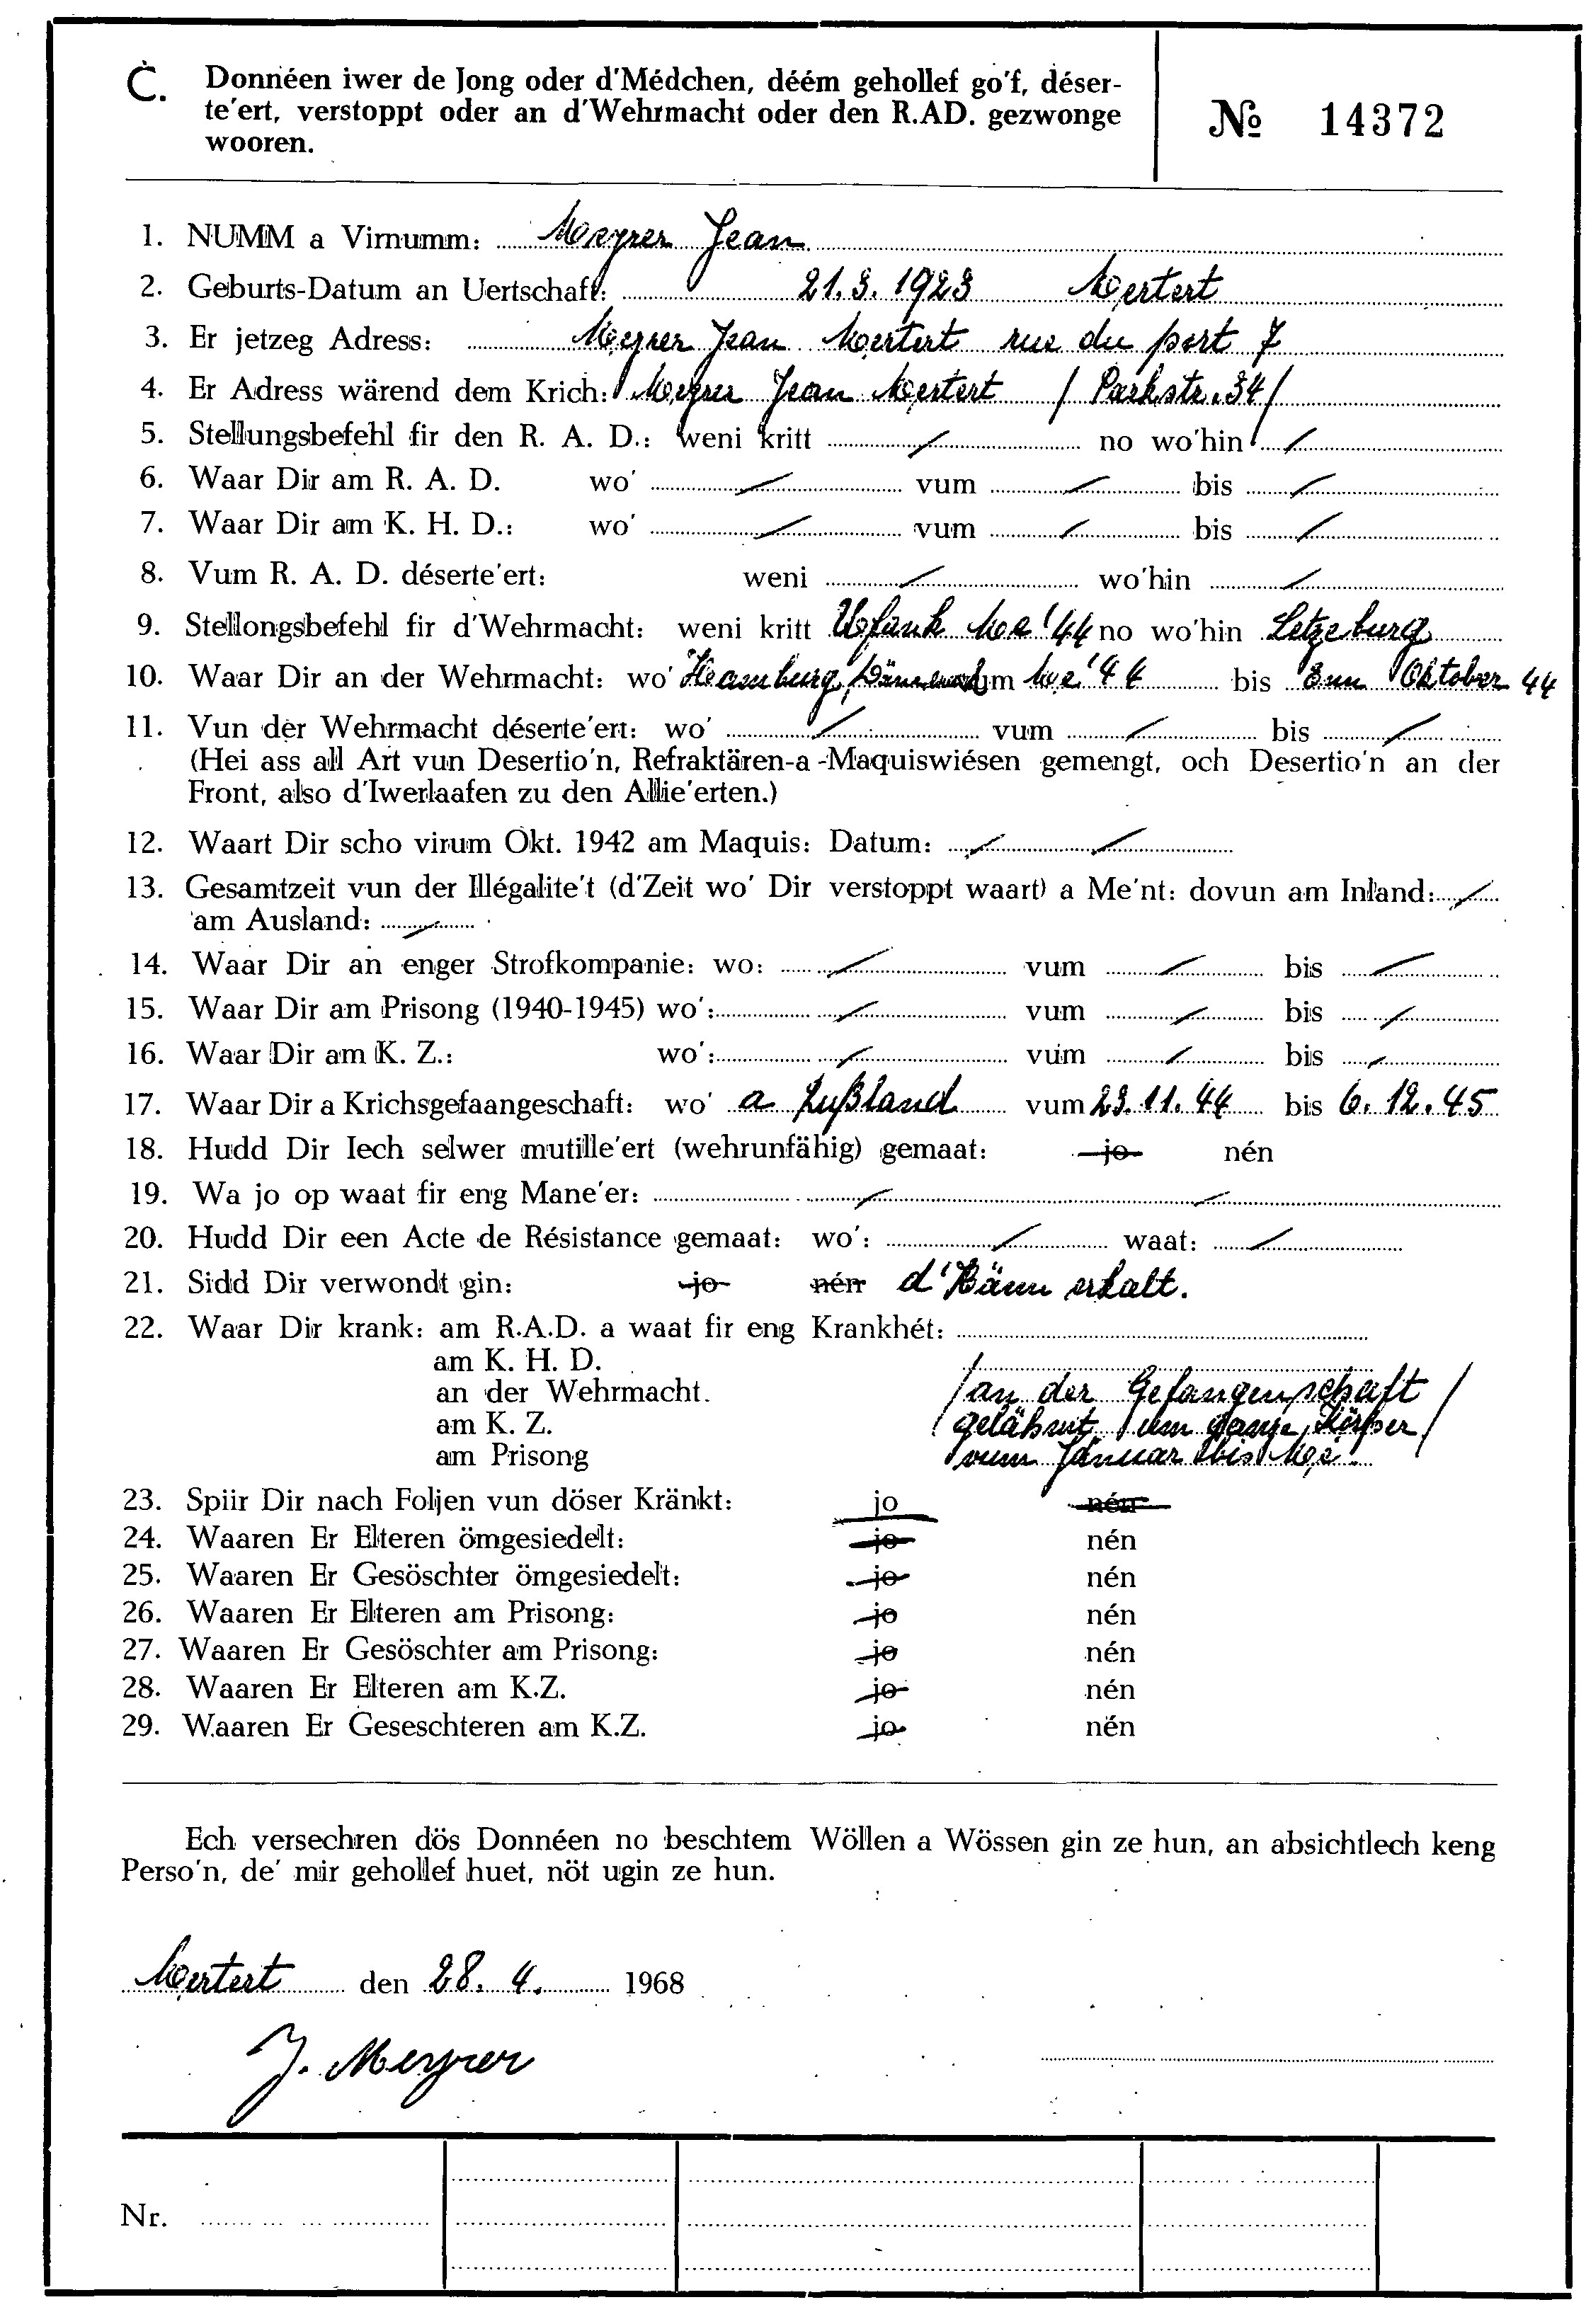 C. Donnéen iwer de Jong oder d'Médchen, déém gehollef go'f, déser-
te'ert, verstoppt oder an d'Wehrmacht oder den R.AD. gezwonge
wooren.
№ 14372
1. NUMM a Virnumm: Meyrer Jean
2. Geburts-Datum an Uertschaft: 21.3.1923 Mertert
3. Er jetzeg Adress: Meyrer Jean Mertert rue du port 7
4. Er Adress wärend dem Krich: Meyrer Jean Mertert / Parkstr. 34 /
5. Stellungsbefehl fir den R. A. D.: weni kritt / no wo'hin /
6. Waar Dir am R. A. D. wo' / vum / bis /
7. Waar Dir am K. H. D.: wo' / vum / bis /
8. Vum R. A. D. déserte'ert: weni / wo'hin /
9. Stellongsbefehl fir d'Wehrmacht: weni kritt Ufank Me '44 no wo'hin Letzeburg
10. Waar Dir an der Wehrmacht: wo' Hamburg, vum Me '44 bis Enn Oktober 44
11. Vun der Wehrmacht déserte'ert: wo' / vum / bis /
(Hei ass all Art vun Desertio'n, Refraktären-a-Maquiswiésen gemengt, och Desertio'n an der
Front, also d'Iwerlaafen zu den Allie'erten.)
12. Waart Dir scho virum Okt. 1942 am Maquis: Datum: / /
13. Gesamtzeit vun der Illégalite't (d'Zeit wo' Dir verstoppt waart) a Me'nt: dovun am Inland: /
am Ausland: /
14. Waar Dir an enger Strofkompanie: wo: / vum / bis /
15. Waar Dir am Prisong (1940-1945) wo': / vum / bis /
16. Waar Dir am K. Z.: wo': / vum / bis /
17. Waar Dir a Krichsgefaangeschaft: wo' a Rußland vum 23.11.44 bis 6.12.45
18. Hudd Dir Iech selwer mutille'ert (wehrunfähig) gemaat: jo nén
19. Wa jo op waat fir eng Mane'er: / /
20. Hudd Dir een Acte de Résistance gemaat: wo': / waat: /
21. Sidd Dir verwondt gin: jo nén d'Bänn erkalt.
22. Waar Dir krank: am R.A.D. a waat fir eng Krankhét:
am K. H. D.
an der Wehrmacht. / an der Gefangenschaft /
am K. Z. / gelähmt um ganze Körper /
am Prisong vum Januar bis Me'.
23. Spiir Dir nach Foljen vun döser Kränkt: jo nén
24. Waaren Er Elteren ömgesiedelt: jo nén
25. Waaren Er Gesöschter ömgesiedelt: jo nén
26. Waaren Er Elteren am Prisong: jo nén
27. Waaren Er Gesöschter am Prisong: jo nén
28. Waaren Er Elteren am K.Z. jo nén
29. Waaren Er Geseschteren am K.Z. jo nén
Ech versechren dös Donnéen no beschtem Wöllen a Wössen gin ze hun, an absichtlech keng
Perso'n, de' mir gehollef huet, nöt ugin ze hun.
Mertert den 28. 4. 1968
J. Meyrer
Nr.